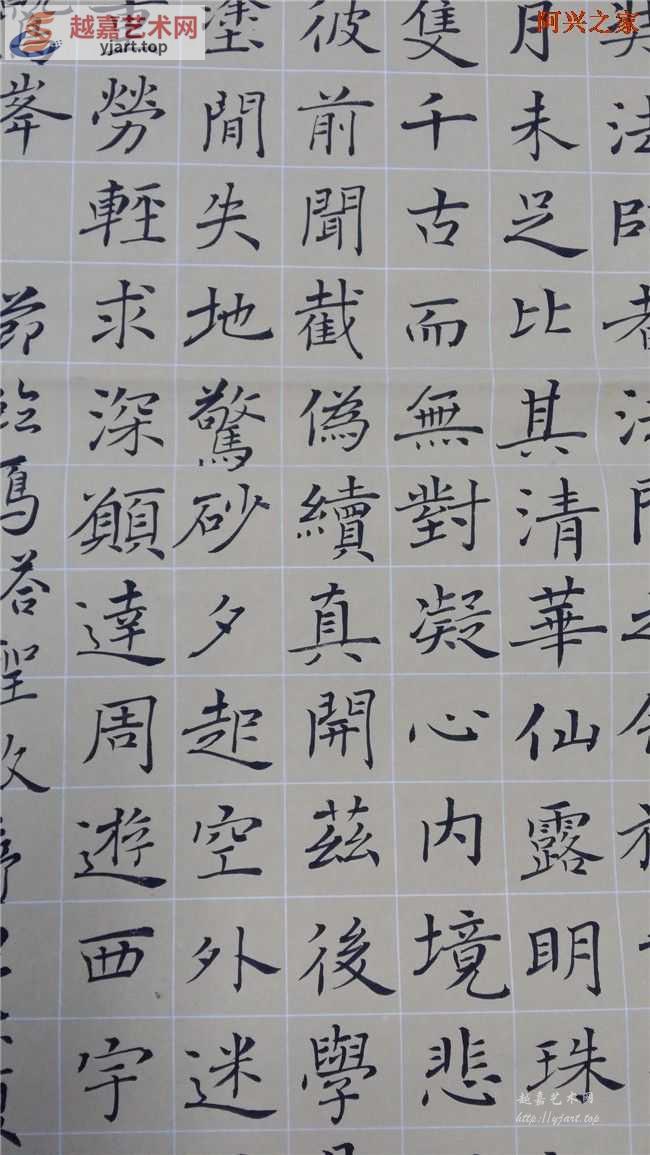 越嘉艺术网
yjart.top
阿兴之家
奘法師者法門之
月未足比其清華仙露明珠
隻千古而無對凝心内境悲
彼前聞截偽續真開茲後學
塗閒失地驚砂夕起空外迷
重勞輕求深願達周遊西宇
峯
節臨鴈塔聖教序
越嘉艺术网
http://yjart.top